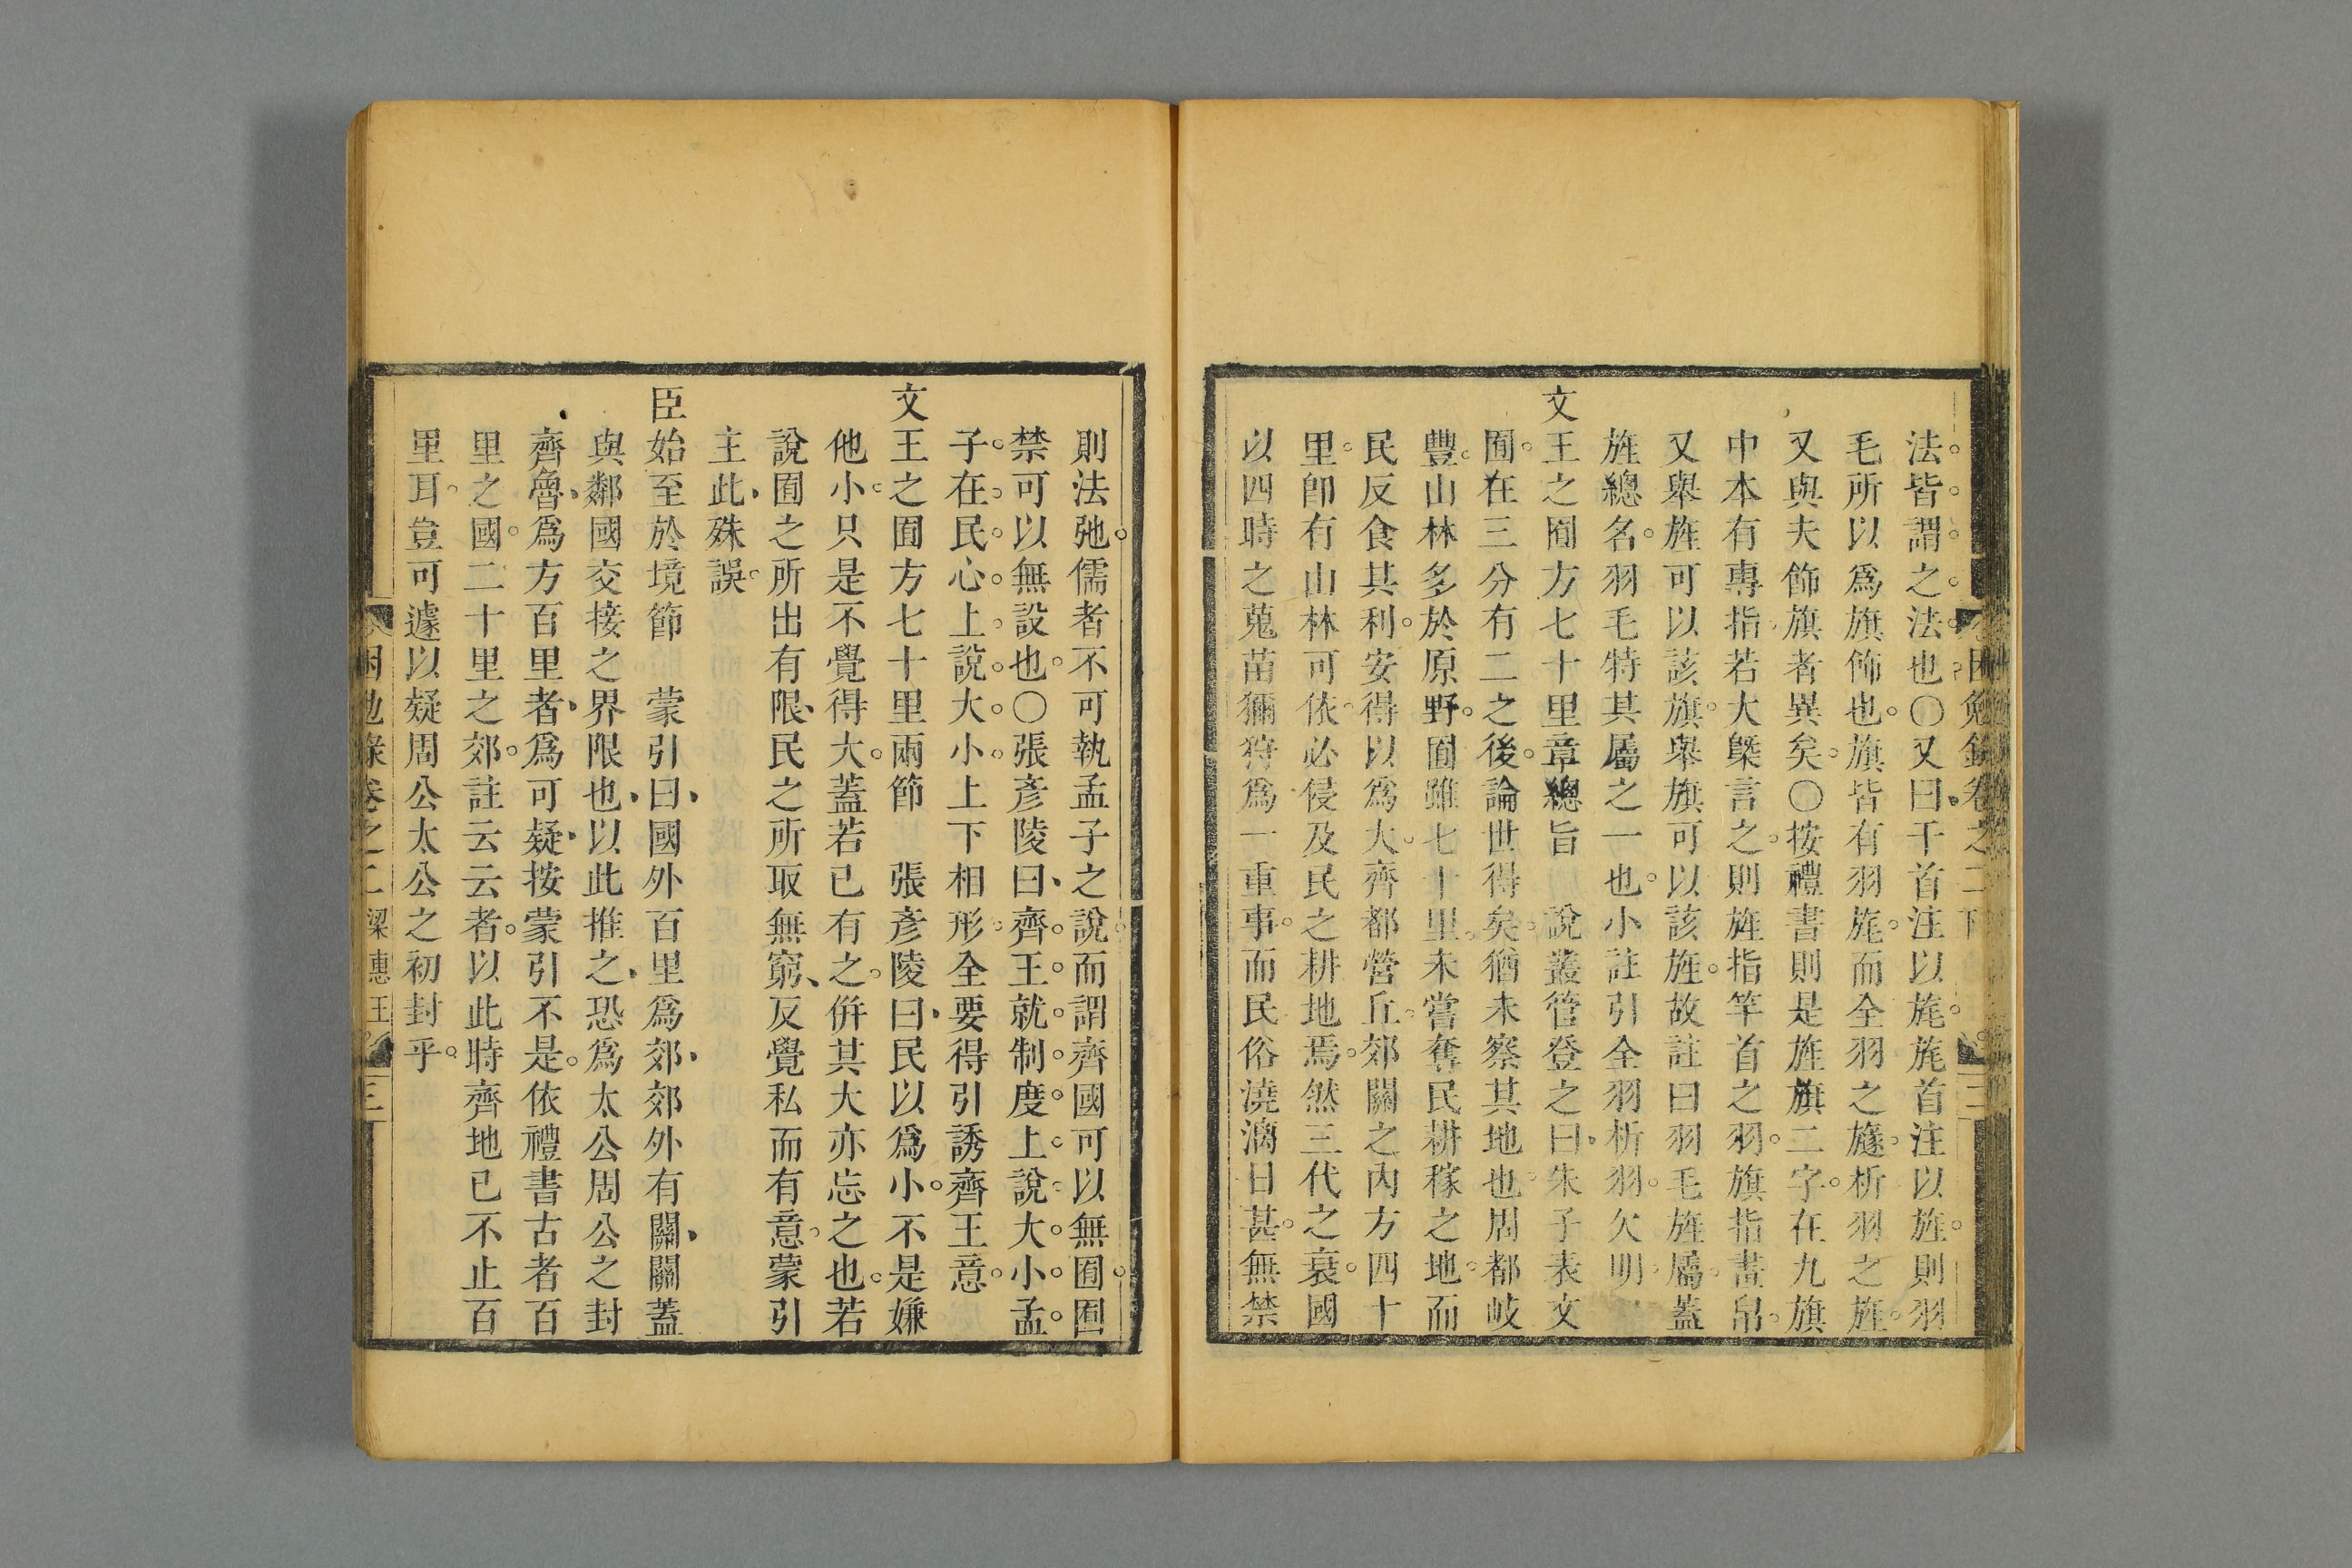 困勉錄卷之二
二
法皆謂之法也〇又曰干首注以旄旄首注以旌則羽
毛所以爲旗飾也旗皆有羽旄而全羽之旞析羽之旌
又與夫飾旗者異矣〇按禮書則是旌旗二字在九旗
中本有專指若大槩言之則旌指竿首之羽旗指畫帛
又舉旌可以該旗舉旗可以該旌故註曰羽毛旌屬蓋
旌總名羽毛特其屬之一也小註引全羽析羽欠明
文王之囿方七十里章總旨 說叢管登之曰朱子表文
囿在三分有二之後論世得矣猶未察其地也周都岐
豐山林多於原野囿雖七十里未嘗奪民耕稼之地而
民反食其利安得以爲大齊都營丘郊關之內方四十
里卽有山林可依必侵及民之耕地焉然三代之衰國
以四時之蒐苗獮狩爲一重事而民俗澆漓日甚無禁
則法弛儒者不可執孟子之說而謂齊國可以無囿囿
禁可以無設也〇張彥陵曰齊王就制度上說大小孟
子在民心上說大小上下相形全要得引誘齊王意
文王之囿方七十里兩節 張彥陵曰民以爲小不是嫌
他小只是不覺得大蓋若已有之併其大亦忘之也若
說囿之所出有限民之所取無窮反覺私而有意蒙引
主此殊誤
臣始至於境節 蒙引曰國外百里爲郊郊外有關關蓋
與鄰國交接之界限也以此推之恐爲太公周公之封
齊魯爲方百里者爲可疑按蒙引不是依禮書古者百
里之國二十里之郊註云云者以此時齊地已不止百
里耳豈可遽以疑周公太公之初封乎
困勉錄卷之二 梁惠王
三